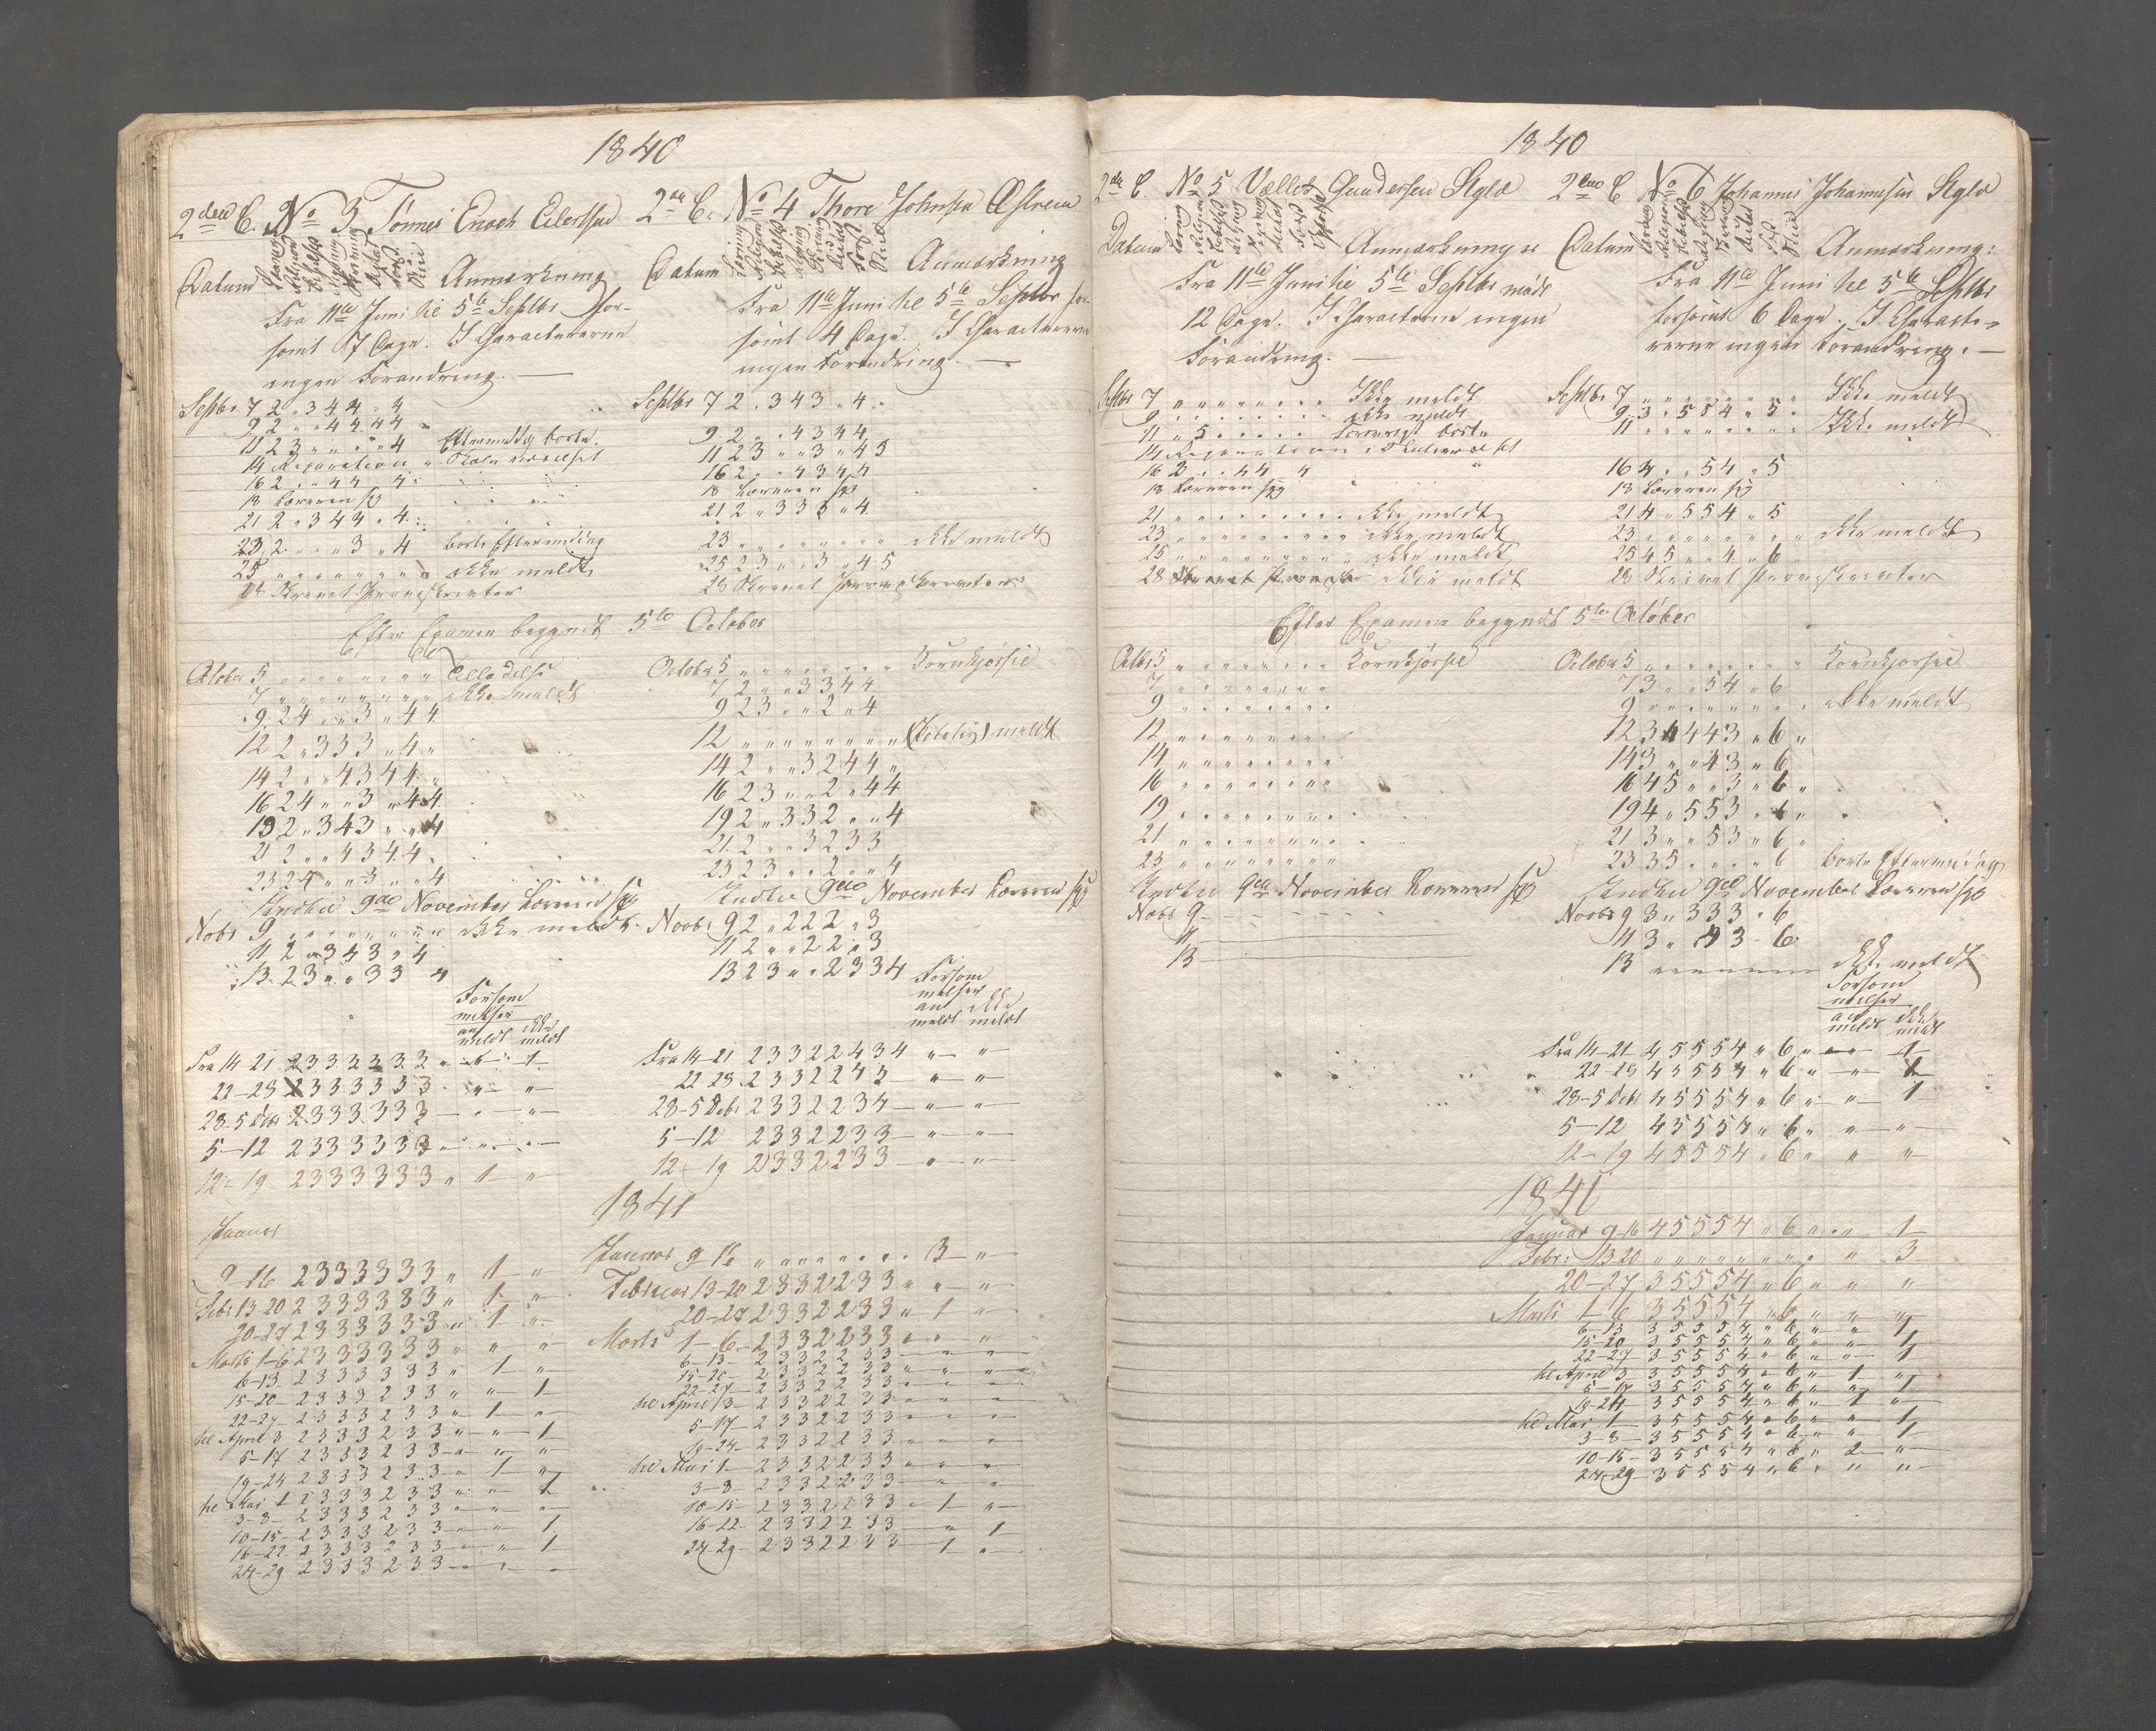 1840
2den C. No 3 Tönnes Enoch Eilertsen
Datum Anmærkning
Fra 11te Juni til 5te Septbr for-
sømt 7 Dage. I Charactererne
ingen Forandring. —
Septbr. 7 2 „ 3 4 4 „ 4
9 2 „ „ 4 4 4 4
11 2 3 „ „ „ „ 4 Eftermiddag borte.
14 Reparation „ Skoleværelset
16 2 „ „ 4 4 4 „
18 Læreren syg
21 2 „ 3 4 4 „ 4
23 2 „ „ „ 3 „ 4 borte Eftermiddag
25 „ „ „ „ „ „ „ „ ikke meldt
28 Skrevet Prøveskrevter
Efter Examen begyndt 5te October
October 5 „ „ „ „ „ „ „ „
7 „ „ „ „ „ „ „ „ ikke meldt
9 2 4 „ „ 3 „ 4 4
12 2 „ 3 3 3 „ 4 „
14 2 „ „ 4 3 4 4 „
16 2 4 „ „ 3 „ 4 4
19 2 „ 3 4 3 „ „ 4
21 2 „ „ 4 3 4 4 „
23 2 4 „ „ 3 „ „ 4
Indtil 9de November Læreren syg
Nobr 9 „ „ „ „ „ „ „ „ ikke meldt
11 2 „ 3 4 3 „ 4
13 2 3 „ „ 3 3 4
Forsøm
melser
an ikke
meldt meldt
Fra 14-21 2 3 3 2 3 3 3 „ „ 1
22-28 2 3 3 3 3 3 3 „ „
28-5 Debr 2 3 3 3 3 3 3 „ „
5-12 2 3 3 3 3 3 3 „ „ „
12-19 2 3 3 3 3 3 3 „ 1 „
Januar
9-16 2 3 3 3 3 3 3 „ 1 „
Febr 13-20 2 3 3 3 3 3 3 „ 1 „
20-27 2 3 3 3 3 3 3 „ 1 „
Marts 1-6 2 3 3 3 3 3 3 „ „ „
6-13 2 3 3 3 3 3 3 „ 1 „
15-20 2 3 3 3 2 3 3 „ „ 1
22-27 2 3 3 3 2 3 3 „ 1 „
til April 3 2 3 3 3 2 3 3 „ „ 1
5-17 2 3 3 3 2 3 3 „ „ „
19-24 2 3 3 3 2 3 3 „ 1 „
til Mai 1 2 3 3 3 2 3 3 „ „ 1
3-8 2 3 3 3 2 3 3 „ „ „
10-15 2 3 3 3 2 3 3 „ „ 1
16-22 2 3 3 3 2 3 3 „ „ 1
24-29 2 3 3 3 2 3 3 „ „ „
2den C. No 4 Thore Johnsen Østrem
Datum Anmærkning
Fra 11te Juni til 5te Septbr for-
sømt 4 Dage. I Characterene
ingen Forandring. —
Septbr 7 2 „ 3 4 3 „ 4 „
9 2 „ „ 4 3 4 4
11 2 3 „ „ 3 „ 4 5
16 2 „ „ 4 3 4 4
18 Læreren syg
21 2 „ 3 3 3 „ 4
23 „ „ „ „ „ „ „ „ ikke meldt
25 2 3 „ „ 3 „ 4 5
28 Skrevet Prøveskrevter
October 5 „ „ „ „ „ „ „ „ Kornkjørsel
7 2 „ „ 3 3 4 4
9 2 3 „ „ 2 „ 4
12 „ „ „ „ „ „ „ „ meldt
14 2 „ „ 3 2 4 4 „
16 2 3 „ „ 2 „ 4 4
19 2 „ 3 3 2 „ „ 4
21 2 „ „ 3 2 3 3
23 2 3 „ „ 2 „ „ 4
Indtil 9de November Læreren syg
Novbr 9 2 „ 2 2 2 „ 3
11 2 „ „ 2 2 „ 3
13 2 3 „ „ 2 3 3 4
Forsøm
melser
an ikke
meldt meldt
Fra 14-21 2 3 3 2 2 4 3 4 „ „
22 28 2 3 3 2 2 4 3 — „ „
28-5 Debr 2 3 3 2 2 3 4 — „ —
5-12 2 3 3 2 2 3 3 — „ —
12-19 2 3 3 2 2 3 3 — „ —
1841
Januar 9-16 „ „ „ „ „ „ „ „ 3 „
Februar 13-20 2 3 3 2 2 3 3 „ „ „
20-27 2 3 3 2 2 3 3 „ 1 „
Marts 1-6 2 3 3 2 2 3 3 „ „ „
6-13 2 3 3 2 2 3 3 — „ —
15-20 2 3 3 2 2 3 3 „ „ „
22-27 2 3 3 2 2 3 3 „ „ „
til April 3 2 3 3 2 2 3 3 „ „ „
5-17 2 3 3 2 2 3 3 „ „ „
19-24 2 3 3 2 2 3 3 „ „ „
til Mai 1 2 3 3 2 2 3 3 „ „ „
3-8 2 3 3 2 2 3 3 — „ —
10-15 2 3 3 2 2 3 3 „ 1 „
16-22 2 3 3 2 2 3 3 — „ 1
24-29 2 3 3 2 2 3 3 — 1 „
1840
2de C. No 5 Gundersen Stgld
Datum Anmærkninger
Fra 11te Juni til 5te Septbr mødt
12 Dage. I Characterene ingen
Forandring. —
Septbr 7 „ „ „ „ „ „ „ „ Ikke meldt
9 „ „ „ „ „ „ „ „ ikke meldt
11 „ 5 „ „ „ „ „ borte
14 Reparation i Skoleværelset
16 3 „ „ 4 4 4
18 Læreren syg
21 „ „ „ „ „ „ „ „ ikke meldt
23 „ „ „ „ „ „ „ „ ikke meldt
25 „ „ „ „ „ „ „ „ ikke meldt
28 ikke meldt
Efter Examen begyndt 5te October
Octbr 5 „ „ „ „ „ „ „ „ Kornkjørsel
7 „ „ „ „ „ „ „ „
9 „ „ „ „ „ „ „ „
12 „ „ „ „ „ „ „ „
14 „ „ „ „ „ „ „ „
16 „ „ „ „ „ „ „ „
19 „ „ „ „ „ „ „ „
21 „ „ „ „ „ „ „ „
23 „ „ „ „ „ „ „ „
Indtil 9de November Læreren syg
Nobr 9 - - - - - - -
11 —
13 —
2den C No 6 Johannes Johannesen Stgld
Datum Anmærkning:
Fra 11te Juni til 5te Septbr
forsømt 6 Dage. I Characte-
rerne ingen Forandring. —
Septbr 7 „ „ „ „ „ „ „ „ Ikke meldt
9 3 „ 5 5 4 „ 5 „
11 „ „ „ „ „ „ „ „ Ikke meldt
16 4 „ „ 5 4 „ 5
18 Læreren syg
21 4 „ 5 5 4 „ 5
23 „ „ „ „ „ „ „ „ ikke meldt
25 4 5 „ „ 4 „ 6
28 Skrevet Prøveskrevter
October 5 „ „ „ „ „ „ „ „ Kornkjørsel
7 3 „ „ 5 4 „ 6
9 „ „ „ „ „ „ „ „ ikke meldt
12 3 4 4 4 3 „ 6 „
14 3 „ „ 4 3 „ 6
16 4 5 „ „ 3 „ 6 „
19 4 „ 5 5 3 „ 6 „
21 3 „ „ 5 3 „ 6 „
23 3 5 „ „ „ „ 6 borte Eftermiddag
Indtil 9de November Læreren syg
Novbr 9 3 „ 3 3 3 „ 6
11 3 „ „ 4 3 - 6
13 „ „ „ „ „ „ „ ikke meldt
Forsøm
melser
an ikke
meldt meldt
Fra 14-21 4 5 5 5 4 „ 6 „ „ 1
22-28 4 5 5 5 4 „ 6 „ „ 1
28-5 Debr 4 5 5 5 4 „ 6 „ „ 1
5-12 4 5 5 5 4 „ 6 „ „ „
12-19 4 5 5 5 4 „ 6 „ „ „
1841
Januar 9-16 4 5 5 5 4 „ 6 „ „ 1
Febr: 13-20 „ „ „ „ „ „ „ „ „ 3
20-27 3 5 5 5 4 „ 6 „ „ „
Marts 1-6 3 5 5 5 4 „ 6 „ „ „
6-13 3 5 5 5 4 „ 6 „ „ 1
15-20 3 5 5 5 4 „ 6 „ „ 1
22-27 3 5 5 5 4 „ 6 „ „ 1
til April 3 3 5 5 5 4 „ 6 „ 1 „
5-17 3 5 5 5 4 „ 6 „ „ 1
19-24 3 5 5 5 4 „ 6 „ 1 „
til Mai 1 3 5 5 5 4 „ 6 „ „ 1
3-8 3 5 5 5 4 „ 6 „ „ 1
10-15 3 5 5 5 4 „ 6 „ 2 „
24-29 3 5 5 5 4 „ 6 „ „ „